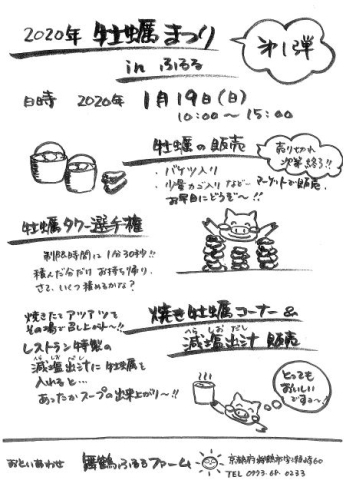 2020年 牡蠣まつり
in ふるる
第1弾
日時 2020年 1月19日(日)
10:00〜15:00
牡蠣の販売
・バケツ入り
・少量カゴ入り など… マーケットで販売
お早目にどうぞ〜!!
売りきれ
次第終了!!
牡蠣タワー選手権
制限時間に1分30秒!!
積んだ分だけ お持ち帰り。
さて、いくつ積めるかな?
焼き牡蠣コーナー&
へらしお だし
減塩出汁 販売
焼きたてアツアツを
その場で召し上がれ〜!!
レストラン特製の
へらしお だし
減塩出汁に牡蠣を
入れると…
あったかスープの出来上がり〜!!
とっても
おいしい
ですョ〜!
おといあわせ 舞鶴ふるるファーム
京都府舞鶴市字瀬崎60
TEL 0773-68-0233